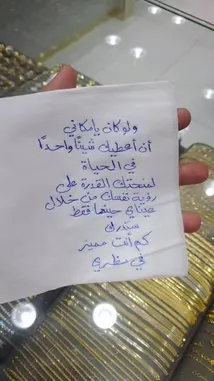 ولو كان بإمكاني
أن أعطيك شيئاً واحداً
في الحياة
لمنحتك القدرة على
رؤية نفسك من خلال
عيناي حينها فقط
ستدرك
كم أنت مميز
في نظري